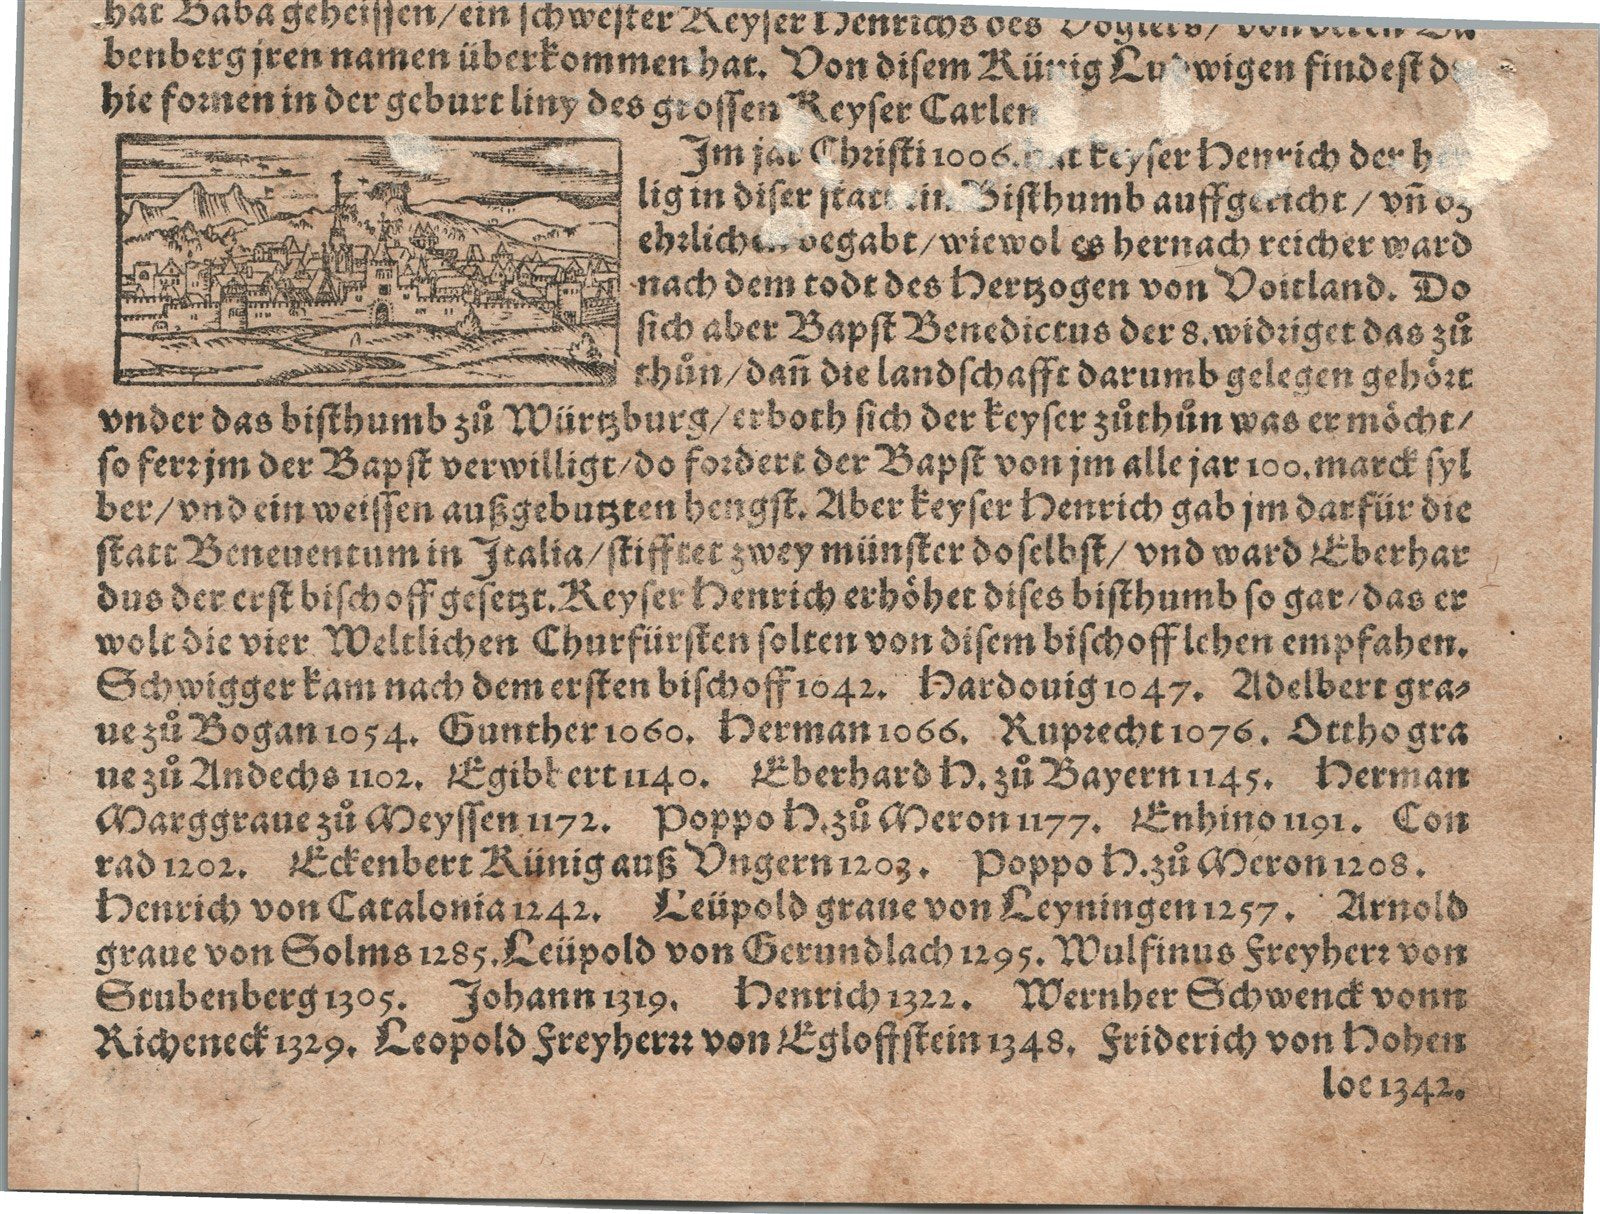 hat Baba geheissen/ein schwester Keyser Henrichs des Voglers/ von deren Ba
benberg jren namen überkommen hat. Von disem Künig Ludwigen findest du
hie fornen in der geburt liny des grossen Keyser Carlen
Im jar Christi 1006. hat keyser Henrich der hei
lig in diser statt ein Bisthumb auffgericht / vn̄ dz
ehrlichen begabt/wiewol es hernach reicher ward
nach dem todt des Hertzogen von Voitland. Do
sich aber Bapst Benedictus der 8. widriget das zů
thůn/dañ die landschafft darumb gelegen gehört
vnder das bisthumb zů Würtzburg/erboth sich der keyser zůthůn was er möcht/
so ferr jm der Bapst verwilligt/do fordert der Bapst von jm alle jar 100. marck syl
ber/vnd ein weissen außgebutzten hengst. Aber keyser Henrich gab jm darfür die
statt Beneuentum in Italia/stifftet zwey münster doselbst/ vnd ward Eberhar
dus der erst bischoff gesetzt. Keyser Henrich erhöhet dises bisthumb so gar/das er
wolt die vier Weltlichen Churfürsten solten von disem bischoff lehen empfahen.
Schwigger kam nach dem ersten bischoff 1042. Hardouig 1047. Adelbert gra⸗
ue zů Bogan 1054. Gunther 1060. Herman 1066. Ruprecht 1076. Ottho gra
ue zů Andechs 1102. Egibbert 1140. Eberhard H. zů Bayern 1145. Herman
Marggraue zů Meyssen 1172. Poppo H. zů Meron 1177. Enhino 1191. Con
rad 1202. Eckenbert Künig auß Vngern 1203. Poppo H. zů Meron 1208.
Henrich von Catalonia 1242. Leüpold graue von Leyningen 1257. Arnold
graue von Solms 1285. Leüpold von Gerundlach 1295. Wulfinus Freyherr von
Stubenberg 1305. Johann 1319. Henrich 1322. Wernher Schwenck vonn
Richeneck 1329. Leopold Freyherr von Egloffstein 1348. Friderich von Hohen
loe 1342.